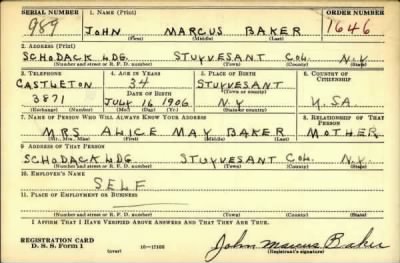 SERIAL NUMBER 1. NAME (Print) ORDER NUMBER
989 JOHN MARCUS BAKER 1646
(First) (Middle) (Last)
2. ADDRESS (Print)
SCHODACK LDG. STUYVESANT COL. N.Y.
(Number and street or R. F. D. number) (Town) (County) (State)
3. TELEPHONE 4. AGE IN YEARS 5. PLACE OF BIRTH 6. COUNTRY OF CITIZENSHIP
CASTLETON 34 STUYVESANT
DATE OF BIRTH (Town or county)
3871 JULY 16 1906 N.Y U.S.A
(Exchange) (Number) (Mo.) (Day) (Yr.) (State or country)
7. NAME OF PERSON WHO WILL ALWAYS KNOW YOUR ADDRESS 8. RELATIONSHIP OF THAT PERSON
MRS ALICE MAY BAKER MOTHER
(Mr., Mrs., Miss) (First) (Middle) (Last)
9. ADDRESS OF THAT PERSON
SCHODACK LDG STUYVESANT COL. N.Y.
(Number and street or R. F. D. number) (Town) (County) (State)
10. EMPLOYER'S NAME
SELF
11. PLACE OF EMPLOYMENT OR BUSINESS
(Number and street or R. F. D. number) (Town) (County) (State)
I AFFIRM THAT I HAVE VERIFIED ABOVE ANSWERS AND THAT THEY ARE TRUE.
REGISTRATION CARD
D. S. S. Form 1 (over) 16—17105 John Marcus Baker
(Registrant's signature)